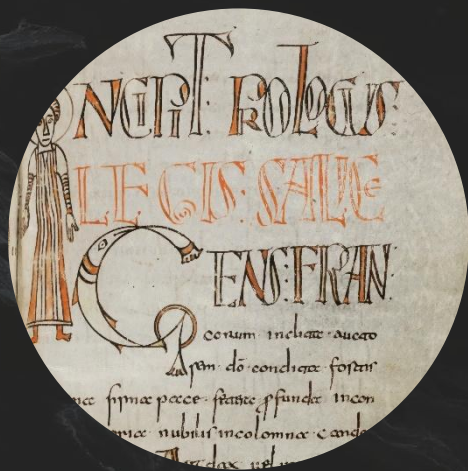 INCIPIT PROLOGUS
LEGIS: SALICE
GENS: FRAN
corum · inclita · aucto
dō · condita · fortis
firma pace · ꝓfunda · incon
nobilis incolomna cande